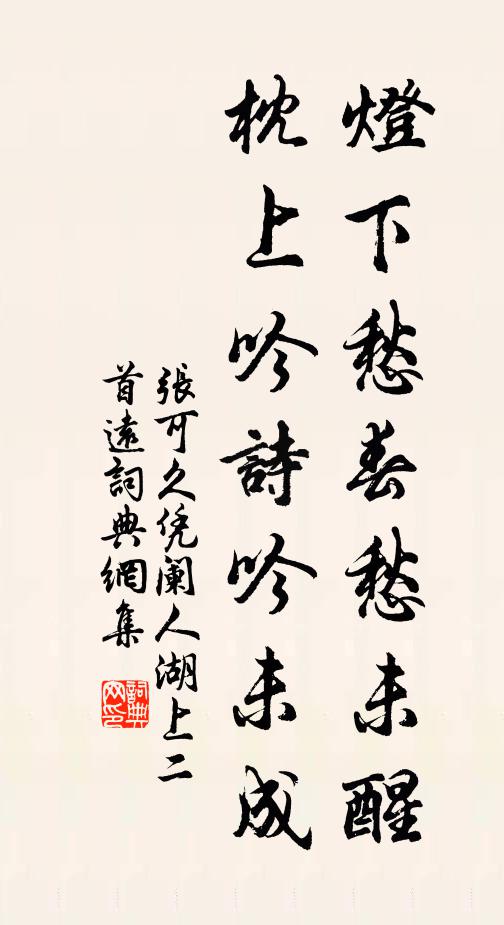 燈下愁春愁未醒
枕上吟詩吟未成
張可久凭闌人湖上二
首遠詞典網集
詞典
网印